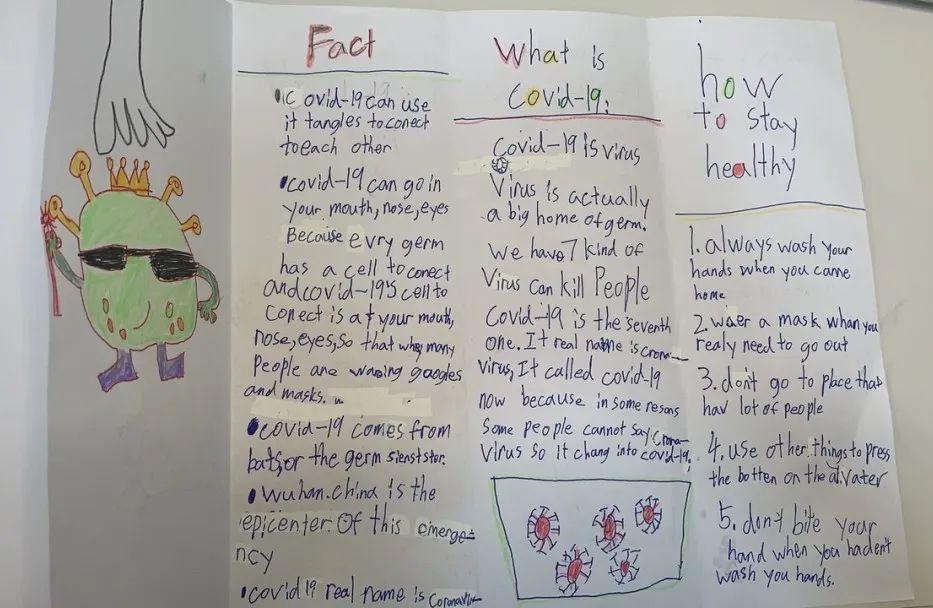 Fact
Covid-19 can use
it tangles to conect
to each other
covid-19 can go in
your mouth, nose, eyes
Because evry germ
has a cell to conect
and covid-19's cell to
conect is at your mouth,
nose, eyes, so that why many
People are waring goggles
and masks.
covid-19 comes from
bats, or the germ sienststor.
wuhan.china is the
epicenter Of this emerge-
ncy
covid 19 real name is
What is
Covid-19:
Covid-19 is virus
Virus is actually
a big home of germ.
we have 7 kind of
Virus can kill People
Covid-19 is the seventh
one. It real name is crona-
virus, It called covid-19
now because in some resons
Some people cannot say crona-
virus so it chang into covid-19.
how
to stay
healthy
1. always wash your
hands when you came
home
2. waer a mask whan you
realy need to go out
3. don't go to place that
hav lot of people
4. use other things to press
the botten on the
5. don't bite your
hand when you haden't
wash you hands.